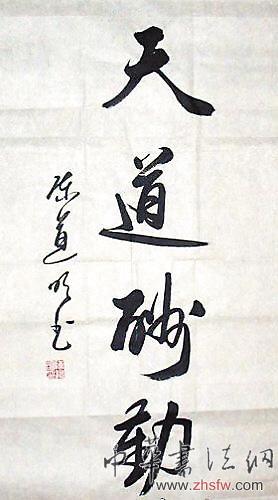 天道酬勤
陈道明书
中華書法網
www.zhsfw.com